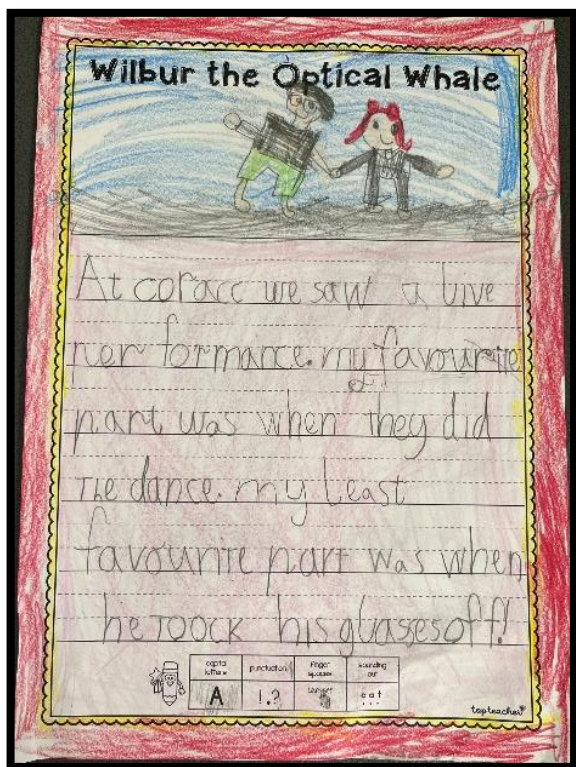 Wilbur the Optical Whale
At coracc we saw a live
per formance. my favourite
part was when they did
The dance. my least
favourite part was when
he Toock his glasses off!
capital letters
punctuation
finger spaces
sounding out
A
!.?
cat
topteacher